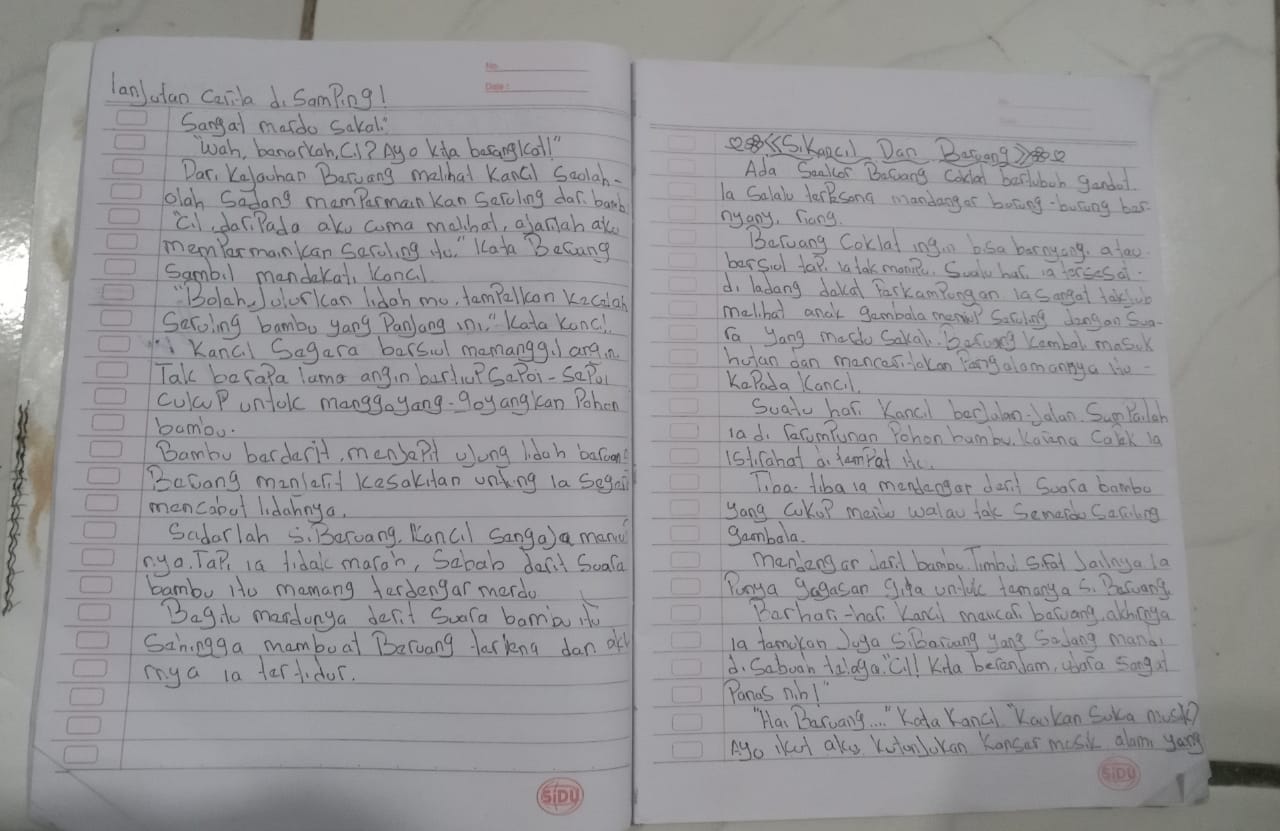 lanjutan cerita di samping!
No.
Date :
Sangat merdu sekali."
"Wah, benarkah, Cil? Ayo kita berangkat!"
Dari kejauhan Beruang melihat Kancil seolah-
olah sedang mempermainkan seruling dari bamb
"Cil, daripada aku cuma melihat, ajarilah aku
mempermainkan seruling itu." Kata Beruang
sambil mendekati Kancil
"Boleh, Julurkan lidah mu, tempelkan kecelah
seruling bambu yang Panjang ini." Kata Kancil.
Kancil Segera bersiul memanggil angin
Tak berapa lama angin bertiup sepoi-sepoi
cukup untuk menggoyang-goyangkan Pohon
bambu.
Bambu berderit, menjepit ujung lidah beruang
Beruang menjerit kesakitan untung ia segera
mencabut lidahnya.
Sadarlah si Beruang, Kancil sengaja menipu
nya. Tapi ia tidak marah, Sebab derit suara
bambu itu memang terdengar merdu
Begitu merdunya derit suara bambu itu
Sehingga membuat Beruang terlena dan akhi
rnya ia tertidur.
SiDU
<<Si Kancil Dan Beruang>>
Ada Seekor Beruang Coklat bertubuh gendut
Ia Selalu terkesona mendengar burung-burung ber-
nyanyi riang.
Beruang Coklat ingin bisa bernyanyi atau
bersiul tapi ia tak mampu. Suatu hari ia tersesat-
di ladang dekat Perkampungan Ia sangat takjub
melihat anak gembala meniup Seruling dengan Sua-
ra Yang merdu Sekali. Beruang Kembali masuk
hutan dan menceritakan Pengalamannya itu -
Kepada Kancil.
Suatu hari Kancil berjalan-jalan. Sampailah
ia di rerumpunan Pohon bambu. Karena Capek ia
istirahat di tempat itu.
Tiba-tiba ia mendengar derit Suara bambu
Yang cukup merdu walau tak Semerdu Seruling
gembala.
Mendengar derit bambu. Timbul Sifat Jailnya Ia
Punya gagasan gila untuk temanya Si Beruang.
Berhari-hari Kancil mencari beruang, akhirnya
ia temukan Juga Si Beruang yang Sedang mandi
di Sebuah telaga. "Cil! Kita berendam, udara Sangat
Panas nih!"
"Hai Beruang...." Kata Kancil "Kaukan Suka musik?
Ayo ikut aku Kutunjukan Konser musik alam yang
SiDU